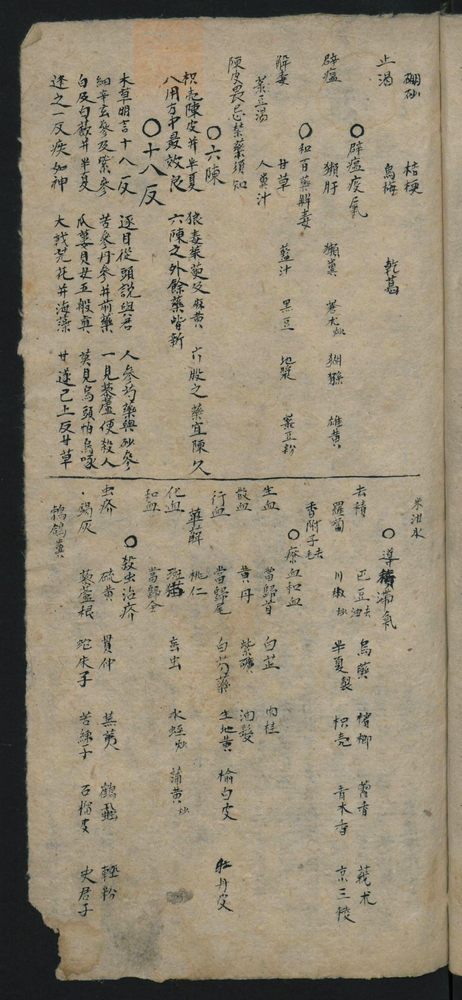 硼砂 桔梗
止渴 烏梅 乾葛
○辟瘟疫氣
辟瘟 獺肝 獺糞 蒼朮 猢猻 雄黃
○和百藥解毒
解毒 甘草 藍汁 黑豆 地漿 菉豆粉
菉豆湯 人糞汁
陳皮畏忌禁藥須知
○六陳
枳壳陳皮并半夏 狼毒茱萸及麻黃 六般之藥宜陳久
入用方中最效良 六陳之外餘藥皆新
○十八反
本草明言十八反 逐目從頭說與君 人參芍藥與砂參
細辛玄參及紫參 苦參丹參并前藥 一見藜蘆便殺人
白及白蘞并半夏 瓜蔞貝母五般真 莫見烏頭怕烏喙
逢之一反疾如神 大戟芫花并海藻 甘遂已上反甘草
米泔水
○導積滯氣
去積 巴豆去油 烏藥 檳榔 藿香 莪朮
蘿蔔 川椒炒 半夏製 枳壳 青木香 京三稜
香附子去毛
○療血和血
生血 當歸首 白芷 肉桂
散血 黃丹 紫礦 油髮
行血 當歸尾 白芍藥 生地黃 榆白皮 牡丹皮
萆薢 桃仁
化血 斑猫 䖟虫 水蛭炒 蒲黃炒
和血 當歸全
○殺虫治疥
虫疥 硫黃 貫仲 蕪荑 鶴虱 輕粉
蝎灰 藜蘆根 蛇床子 苦練子 石榴皮 史君子
鵓鴿糞